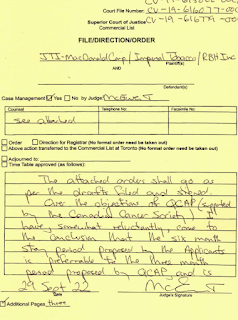 Court File Number: CV-19-
CV-19-616077-00
CV-19-616779-00
Superior Court of Justice
Commercial List
FILE/DIRECTION/ORDER
JTI-MacDonald Corp / Imperial Tobacco / RBH Inc
AND
Defendant(s)
Case Management Yes No by Judge: McEwen J
Counsel Telephone No: Facsimile No:
see attached
Order Direction for Registrar (No formal order need be taken out)
Above action transferred to the Commercial List at Toronto (No formal order need be taken out)
Adjourned to:
Time Table approved (as follows):
The attached orders shall go as
per the drafts filed and signed.
Over the objections of QCAP (supported
by the Canadian Cancer Society) I
have, somewhat reluctantly, come to
the conclusion that the six month
stay period proposed by the Applicants
is preferable to the three month
period proposed by QCAP, and is
29 Sept 22
Date Judge's Signature
Additional Pages three